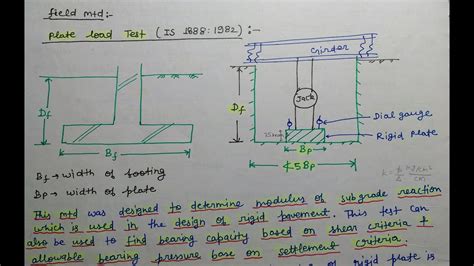 field mtd:
Plate load Test ( IS 1888:1982 ) :-
Girder
Jack
Df
Df
Dial gauge
25mm
Rigid plate
Bf
Bp
≮5Bp
Bf → width of footing
Bp → width of plate
This mtd was designed to determine modulus of subgrade reaction
which is used in the design of rigid pavement. This test can
also be used to find bearing capacity based on shear criteria &
allowable bearing pressure base on settlement criteria.
of rigid plate is